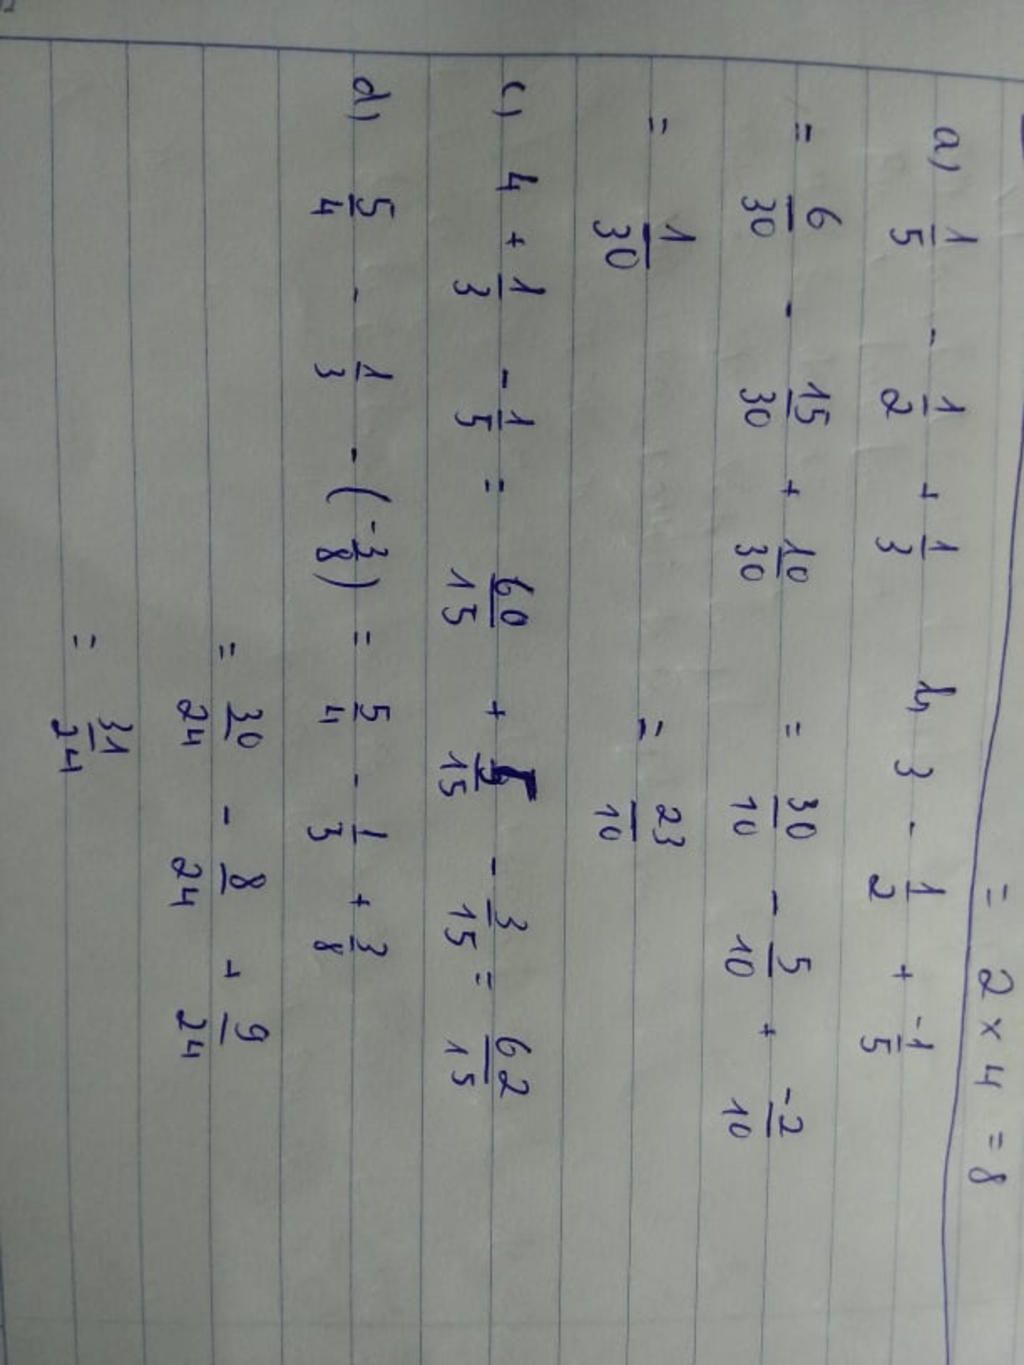 = 2 × 4 = 8
a) 1/5 - 1/2 + 1/3
b) 3 - 1/2 + -1/5
= 6/30 - 15/30 + 10/30
= 30/10 - 5/10 + -2/10
= 1/30
= 23/10
c) 4 + 1/3 - 1/5 = 60/15 + 5/15 - 3/15 = 62/15
d) 5/4 - 1/3 - (-3/8) = 5/4 - 1/3 + 3/8
= 30/24 - 8/24 + 9/24
= 31/24